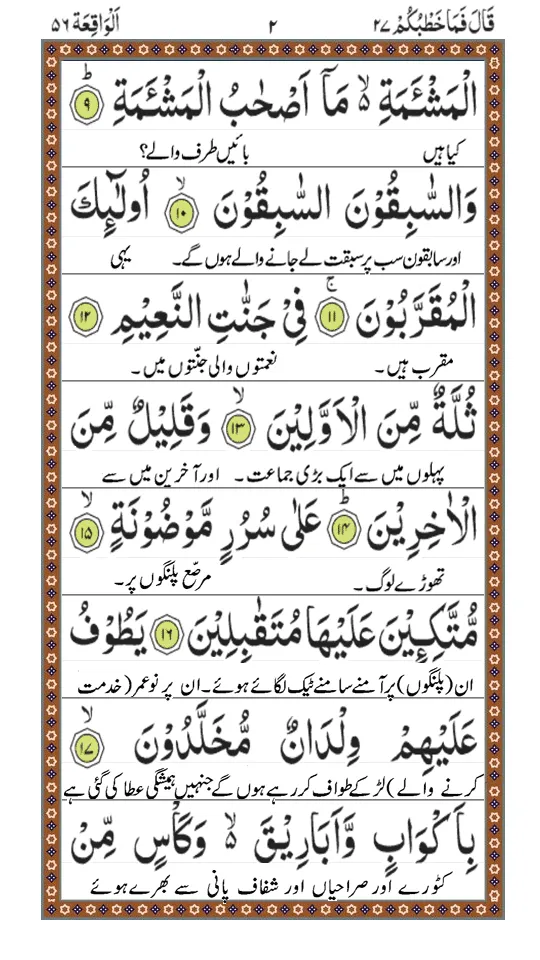 قَالَ فَمَا خَطْبُكُمْ ٢٧ ٢ اَلْوَاقِعَة ٥٦
الْمَشْـَٔمَةِ ۙ۬ مَاۤ اَصْحٰبُ الْمَشْـَٔمَةِ ؕ ۹
کیا ہیں بائیں طرف والے؟
وَالسّٰبِقُوْنَ السّٰبِقُوْنَ ۙ ۱۰ اُولٰٓئِكَ
اور سابقون سب پر سبقت لے جانے والے ہوں گے۔ یہی
الْمُقَرَّبُوْنَ ۚ ۱۱ فِيْ جَنّٰتِ النَّعِيْمِ ۱۲
مقرب ہیں۔ نعمتوں والی جنّتوں میں۔
ثُلَّةٌ مِّنَ الْاَوَّلِيْنَ ۙ ۱۳ وَقَلِيْلٌ مِّنَ
پہلوں میں سے ایک بڑی جماعت۔ اور آخرین میں سے
الْاٰخِرِيْنَ ؕ ۱۴ عَلٰى سُرُرٍ مَّوْضُوْنَةٍ ۙ ۱۵
تھوڑے لوگ۔ مرصّع پلنگوں پر۔
مُّتَّكِـِٕيْنَ عَلَيْهَا مُتَقٰبِلِيْنَ ۱۶ يَطُوْفُ
ان (پلنگوں) پر آمنے سامنے ٹیک لگائے ہوئے۔ ان پر نوعمر (خدمت
عَلَيْهِمْ وِلْدَانٌ مُّخَلَّدُوْنَ ۙ ۱۷
کرنے والے) لڑکے طواف کررہے ہوں گے جنہیں ہمیشگی عطا کی گئی ہے
بِاَكْوَابٍ وَّاَبَارِيْقَ ۙ۬ وَكَاْسٍ مِّنْ
کٹورے اور صراحیاں اور شفاف پانی سے بھرے ہوئے